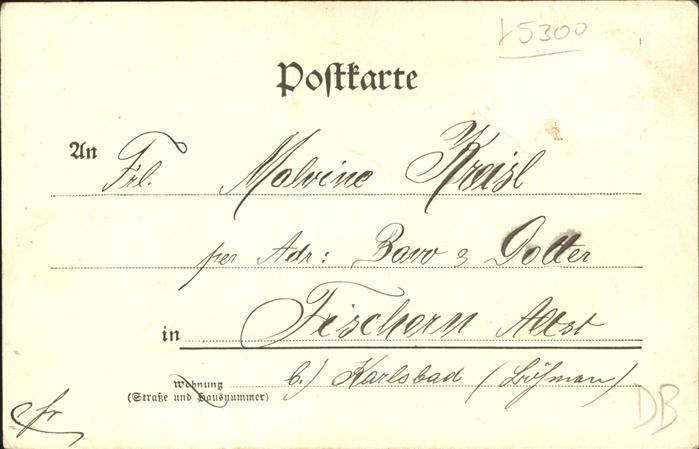 15300
Postkarte
An Frl. Malvine Kraisl
per Adr: Bavo & Dotter
in Fischern Altst
Wohnung b.) Karlsbad (Böhmen)
(Straße und Hausnummer)
DB